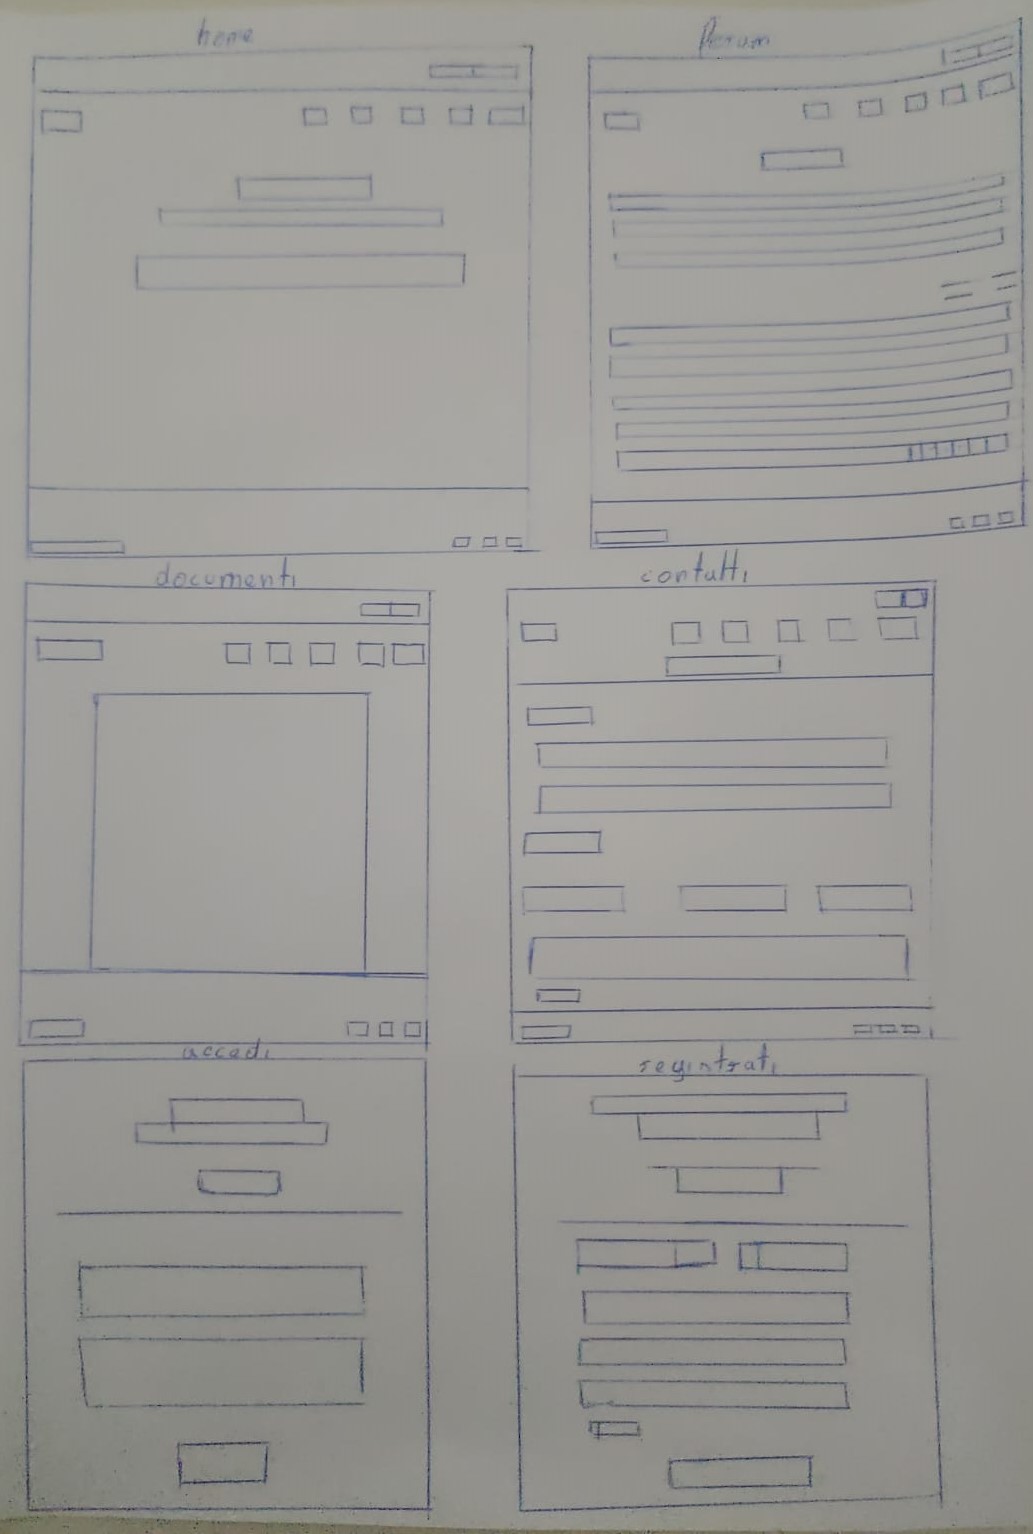 home
Forum
documenti
contatti
accedi
registrati